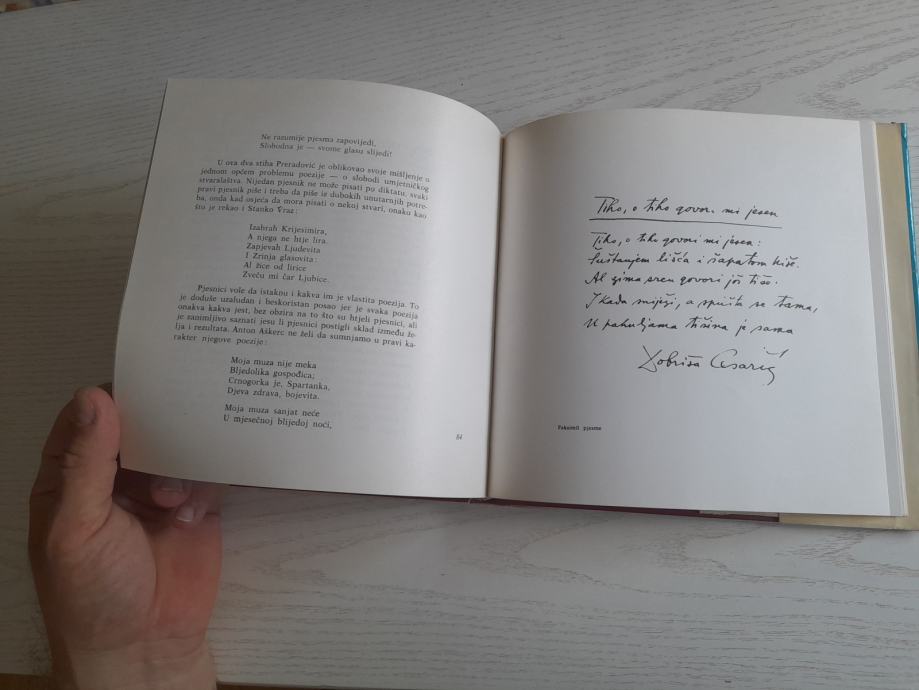 Ne razumije pjesma zapovijedi,
Slobodna je — svome glasu slijedi!
U ova dva stiha Preradović je oblikovao svoje mišljenje u
jednom općem problemu poezije — o slobodi umjetničkog
stvaralaštva. Nijedan pjesnik ne može pisati po diktatu, svaki
pravi pjesnik piše i treba da piše iz dubokih unutarnjih potre-
ba, onda kad osjeća da mora pisati o nekoj stvari, onako kao
što je rekao i Stanko Vraz:
Izabrah Krijesimira,
A njega ne htje lira.
Zapjevah Ljudevita
I Zrinja glasovita:
Al žice od lirice
Zveču mi čar Ljubice.
Pjesnici vole da istaknu i kakva im je vlastita poezija. To
je doduše uzaludan i beskoristan posao jer je svaka poezija
onakva kakva jest, bez obzira na to što su htjeli pjesnici, ali
je zanimljivo saznati jesu li pjesnici postigli sklad između že-
lja i rezultata. Anton Aškerc ne želi da sumnjamo u pravi ka-
rakter njegove poezije:
Moja muza nije meka
Bljedolika gospođica;
Crnogorka je, Spartanka,
Djeva zdrava, bojevita.
Moja muza sanjat neće
U mjesečnoj blijedoj noći,
84
Tiho, o tiho govori mi jesen
Tiho, o tiho govori mi jesen:
Šuštanjem lišća i šapatom kiše.
Al zima srcu govori još tiše.
I kada sniježi, a spušta se tama,
U pahuljama tišina je sama
Dobriša Cesarić
Faksimil pjesme